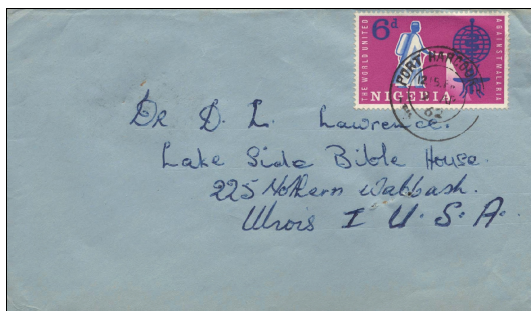 THE WORLD UNITED
6d
AGAINST MALARIA
NIGERIA
PORT HARCOURT
62
Dr D. L. Lawrence.
Lake Side Bible House.
225 Nothern Wabbash.
Illinois I U. S. A.